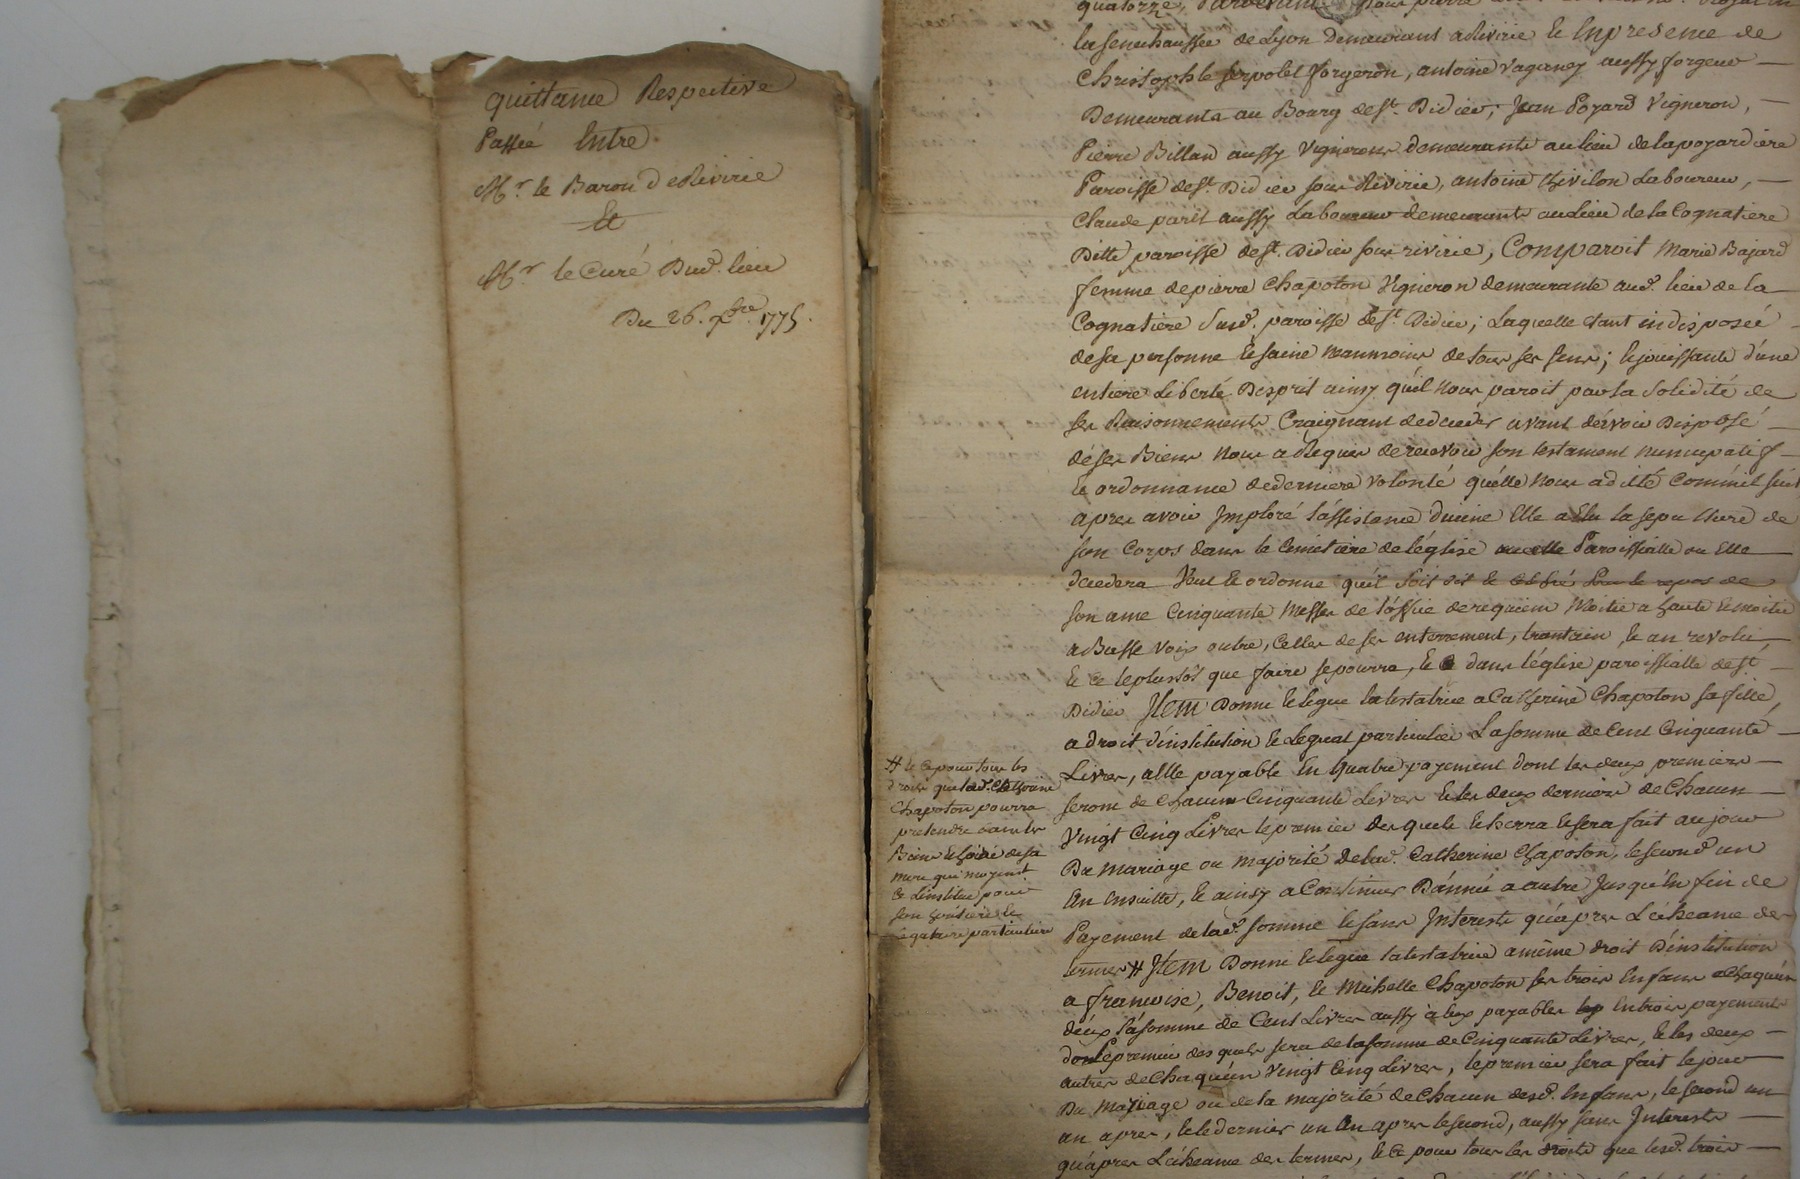 quittance Respective
Passée Entre
Mr. le Baron de Rivirie
Et
Mr. le Curé Dud. lieu
Du 26. 7bre. 1775.
quatorze, Pardevant Nous pierre
la senechaussée de Lyon Demeurant a Rivirie et En presence de
Christophle serpolet forgeron, antoine Vaganey aussy forgeur
Demeurants au Bourg de st. Didier; Jean Poyard Vigneron,
Pierre Billan aussy Vignerons demeurants au lieu de la poyardiere
Paroisse de st. Didier sous Rivirie, antoine Laboureur,
Claude parit aussy Laboureur demeurants au lieu de la Cognatiere
Ditte paroisse de st. Didier sous rivirie, Comparoit Marie Bajard
femme de pierre Chapoton Vigneron demeurante aud. lieu de la
Cognatiere Susd. paroisse de st. Didier; Laquelle etant indisposeé
de sa personne et saine neanmoins de tous ses sens; et jouissante d'une
entiere Liberté Desprit ainsy qu'il nous paroit par la Solidité de
ses Raisonnements Craignant de deceder avant d'ávoir Disposé
dé ses Biens nous a Requis de recevoir son testament nuncupatif
et ordonnance de derniere volonté qu'elle nous a dicté Comme il suit
apres avoir Jmploré l'assistance divine Elle a Elu la sepulture de
son Corps dans le Cimetiere de l'église Paroissialle ou Elle
decedera Veut et ordonne qu'il soit dit et Celebré Pour le repos de
son ame Cinquante Messes de l'óffice de requiem Moitié a haute et moitié
a Basse Voix outre, Celles de ses enterrement, trantain, et an revolu,
et ce le plustôt que faire se pourra, et dans l'église paroissialle de st.
Didier Jtem Donne et legue la testatrice a Catherine Chapoton sa fille,
a droit d'institution et Legat particulier La somme de Cent Cinquante
Livres, a Elle payable En quatre payement dont les deux premiers
seront de Chacun Cinquante Livres et les deux derniers de Chacun
Vingt Cinq Livres le premier des quels Echerra et sera fait au jour
Du mariage ou majorité de lad. Catherine Chapoton, le second un
An Ensuitte, et ainsy a Continuer D'année a autre Jusqu'en fin de
Payement de lad. somme et sans Jnterests qu'apres L'écheance des
termes # Jtem Donne et legue la testatrice a même droit D'institution
a francoise, Benoit, et Michelle Chapoton ses trois Enfans a Chaqu'un
deux la somme de Cent Livres aussy à Eux payables En trois payements
dont le premier des quels sera de la somme de Cinquante Livres, et les deux
autres de Chaqu'un Vingt Cinq Livres, le premier sera fait le jour
Du Mariage ou de la majorité de Chacun desd. Enfans, le second un
an apres, et le dernier un An apres le second, aussy sans Jnterests
qu'apres L'écheance des termes, et Ce pour tous les droits que lesd. trois
# et Ce pour tous les
droits que lad. Catherine
Chapoton pourra
pretendre dans les
Biens et hoirie de sa
mere qui moyent.
Ce L'institue pour
son héritiere et
legataire particuliere